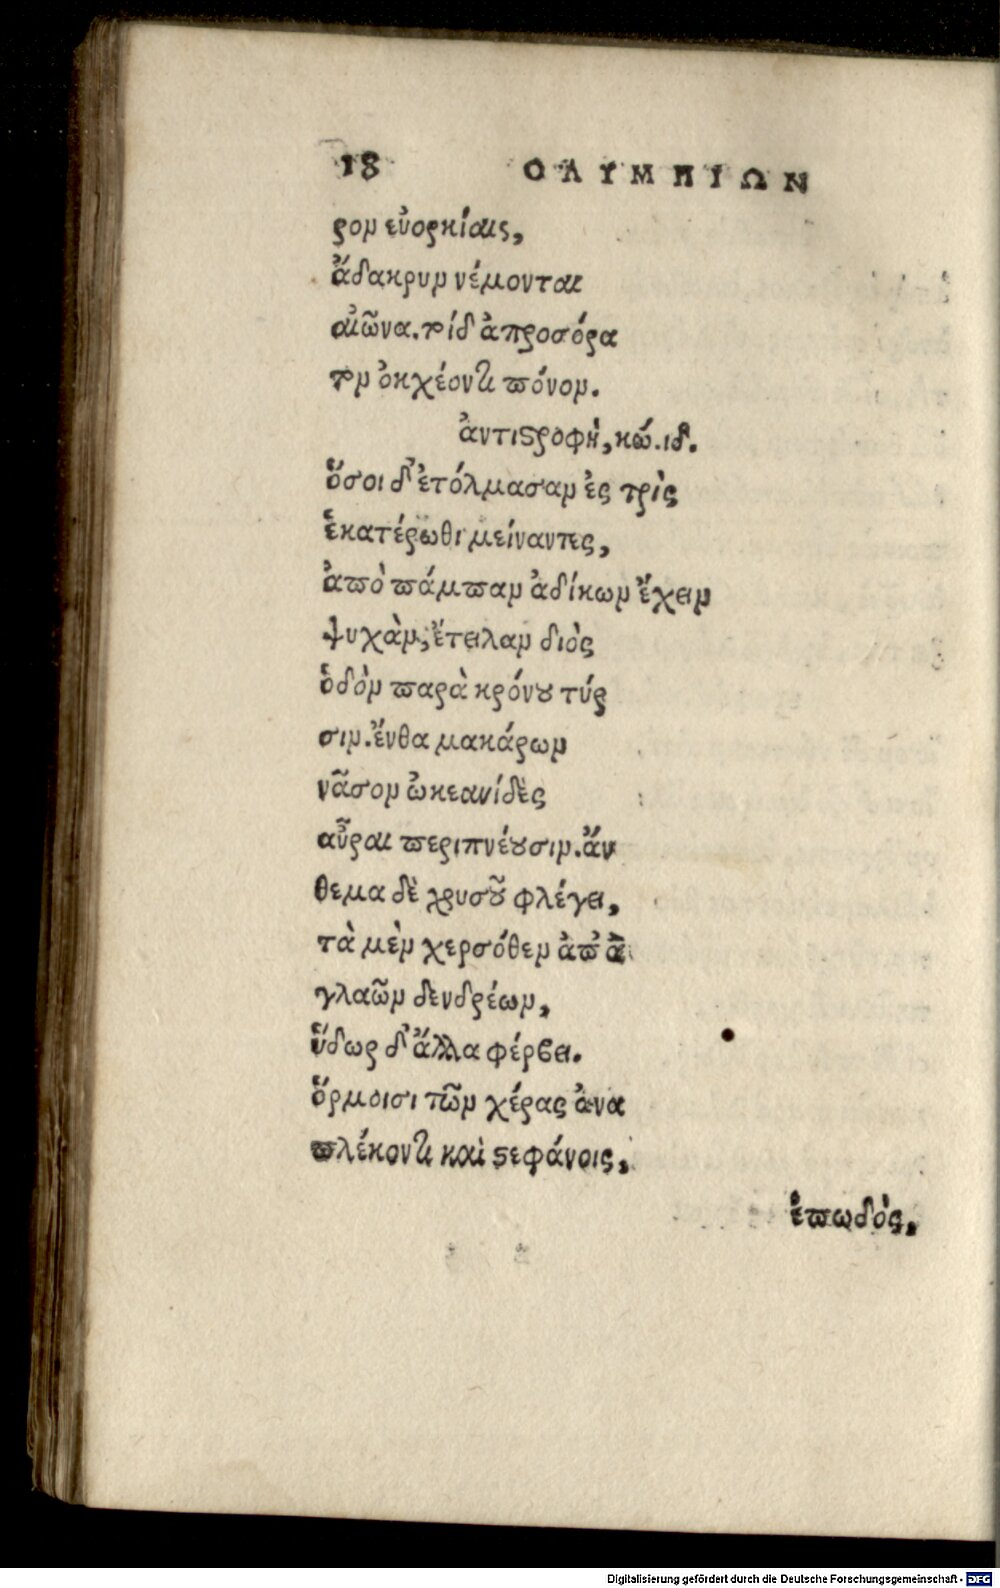 18 ΟΛΥΜΠΙΩΝ
ρον εὐορκίαις,
ἄδακρυν νέμονται
αἰῶνα. τοὶ δ᾽ ἀπροσόρα
τον ὀκχέοντι πόνον.
ἀντιστροφὴ, κώ. ιδ.
ὅσοι δ᾽ ἐτόλμασαν ἐς τρὶς
ἑκατέρωθι μείναντες,
ἀπὸ πάμπαν ἀδίκων ἔχειν
ψυχὰν, ἔτειλαν διὸς
ὁδὸν παρὰ κρόνου τύρ
σιν. ἔνθα μακάρων
νᾶσον ὠκεανίδὲς
αὖραι περιπνέουσιν. ἄν
θεμα δὲ χρυσοῦ φλέγει,
τὰ μὲν χερσόθεν ἀπ ἀ
γλαῶν δενδρέων,
ὕδωρ δ᾽ ἄλλα φέρβει.
ὅρμοισι τῶν χέρας ἀνα
πλέκοντι καὶ στεφάνοις,
ἐπωδὸς,
Digitalisierung gefördert durch die Deutsche Forschungsgemeinschaft - DFG